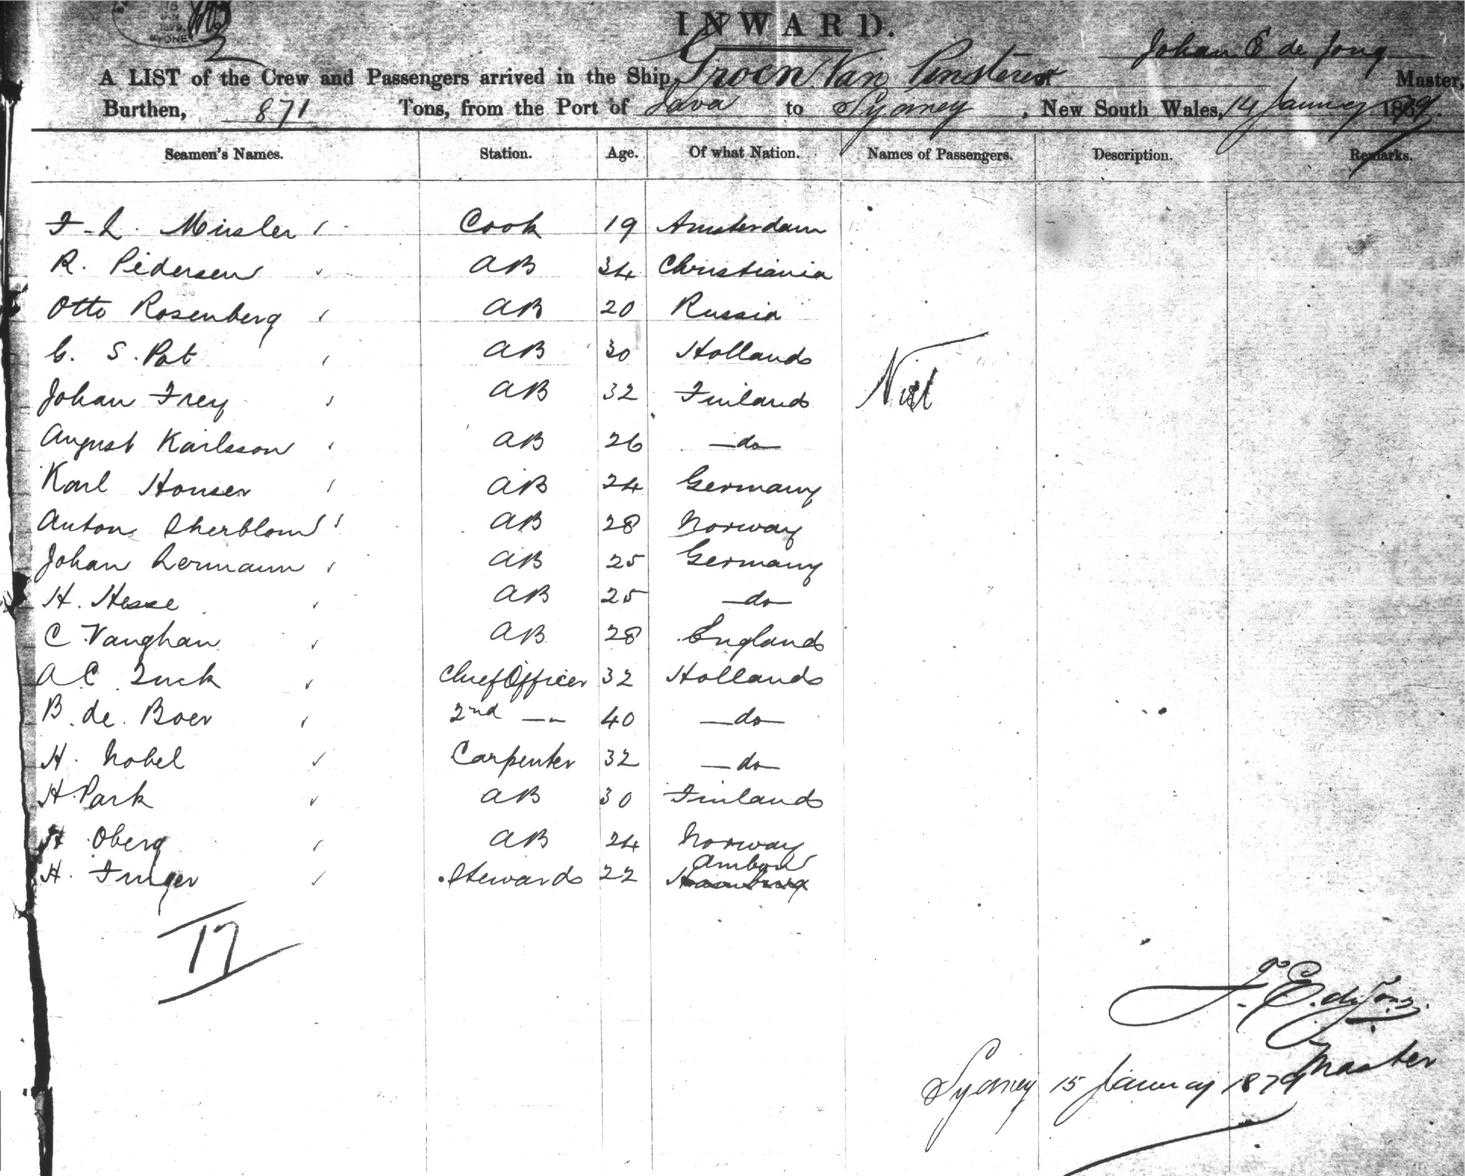 INWARD.
Johan E de Jong
A LIST of the Crew and Passengers arrived in the Ship, Groen Van Prinsterer Master,
Burthen, 871 Tons, from the Port of Java to Sydney, New South Wales, 14 January 1879.
Seamen's Names. Station. Age. Of what Nation. Names of Passengers. Description. Remarks.
Cook 19 Amsterdam
R. Pedersen AB 34 Christiania
Otto Rosenberg AB 20 Russia
S. Pot AB 30 Holland
Johan Frey AB 32 Finland
Nill
August Karlsson AB 26 —do—
Karl Houser AB 24 Germany
Anton AB 28 Norway
Johan Lermann AB 25 Germany
H. Hesse AB 25 —do—
C Vaughan AB 28 England
A C Chief Officer 32 Holland
B. de Boer 2nd —"— 40 —do—
H. Nobel Carpenter 32 —do—
H Park AB 30 Finland
H Oberg AB 24 Norway
Ambon
H. Finger Steward 22 Hamburg
17
J. E. de Jong.
Master
Sydney 15 January 1879